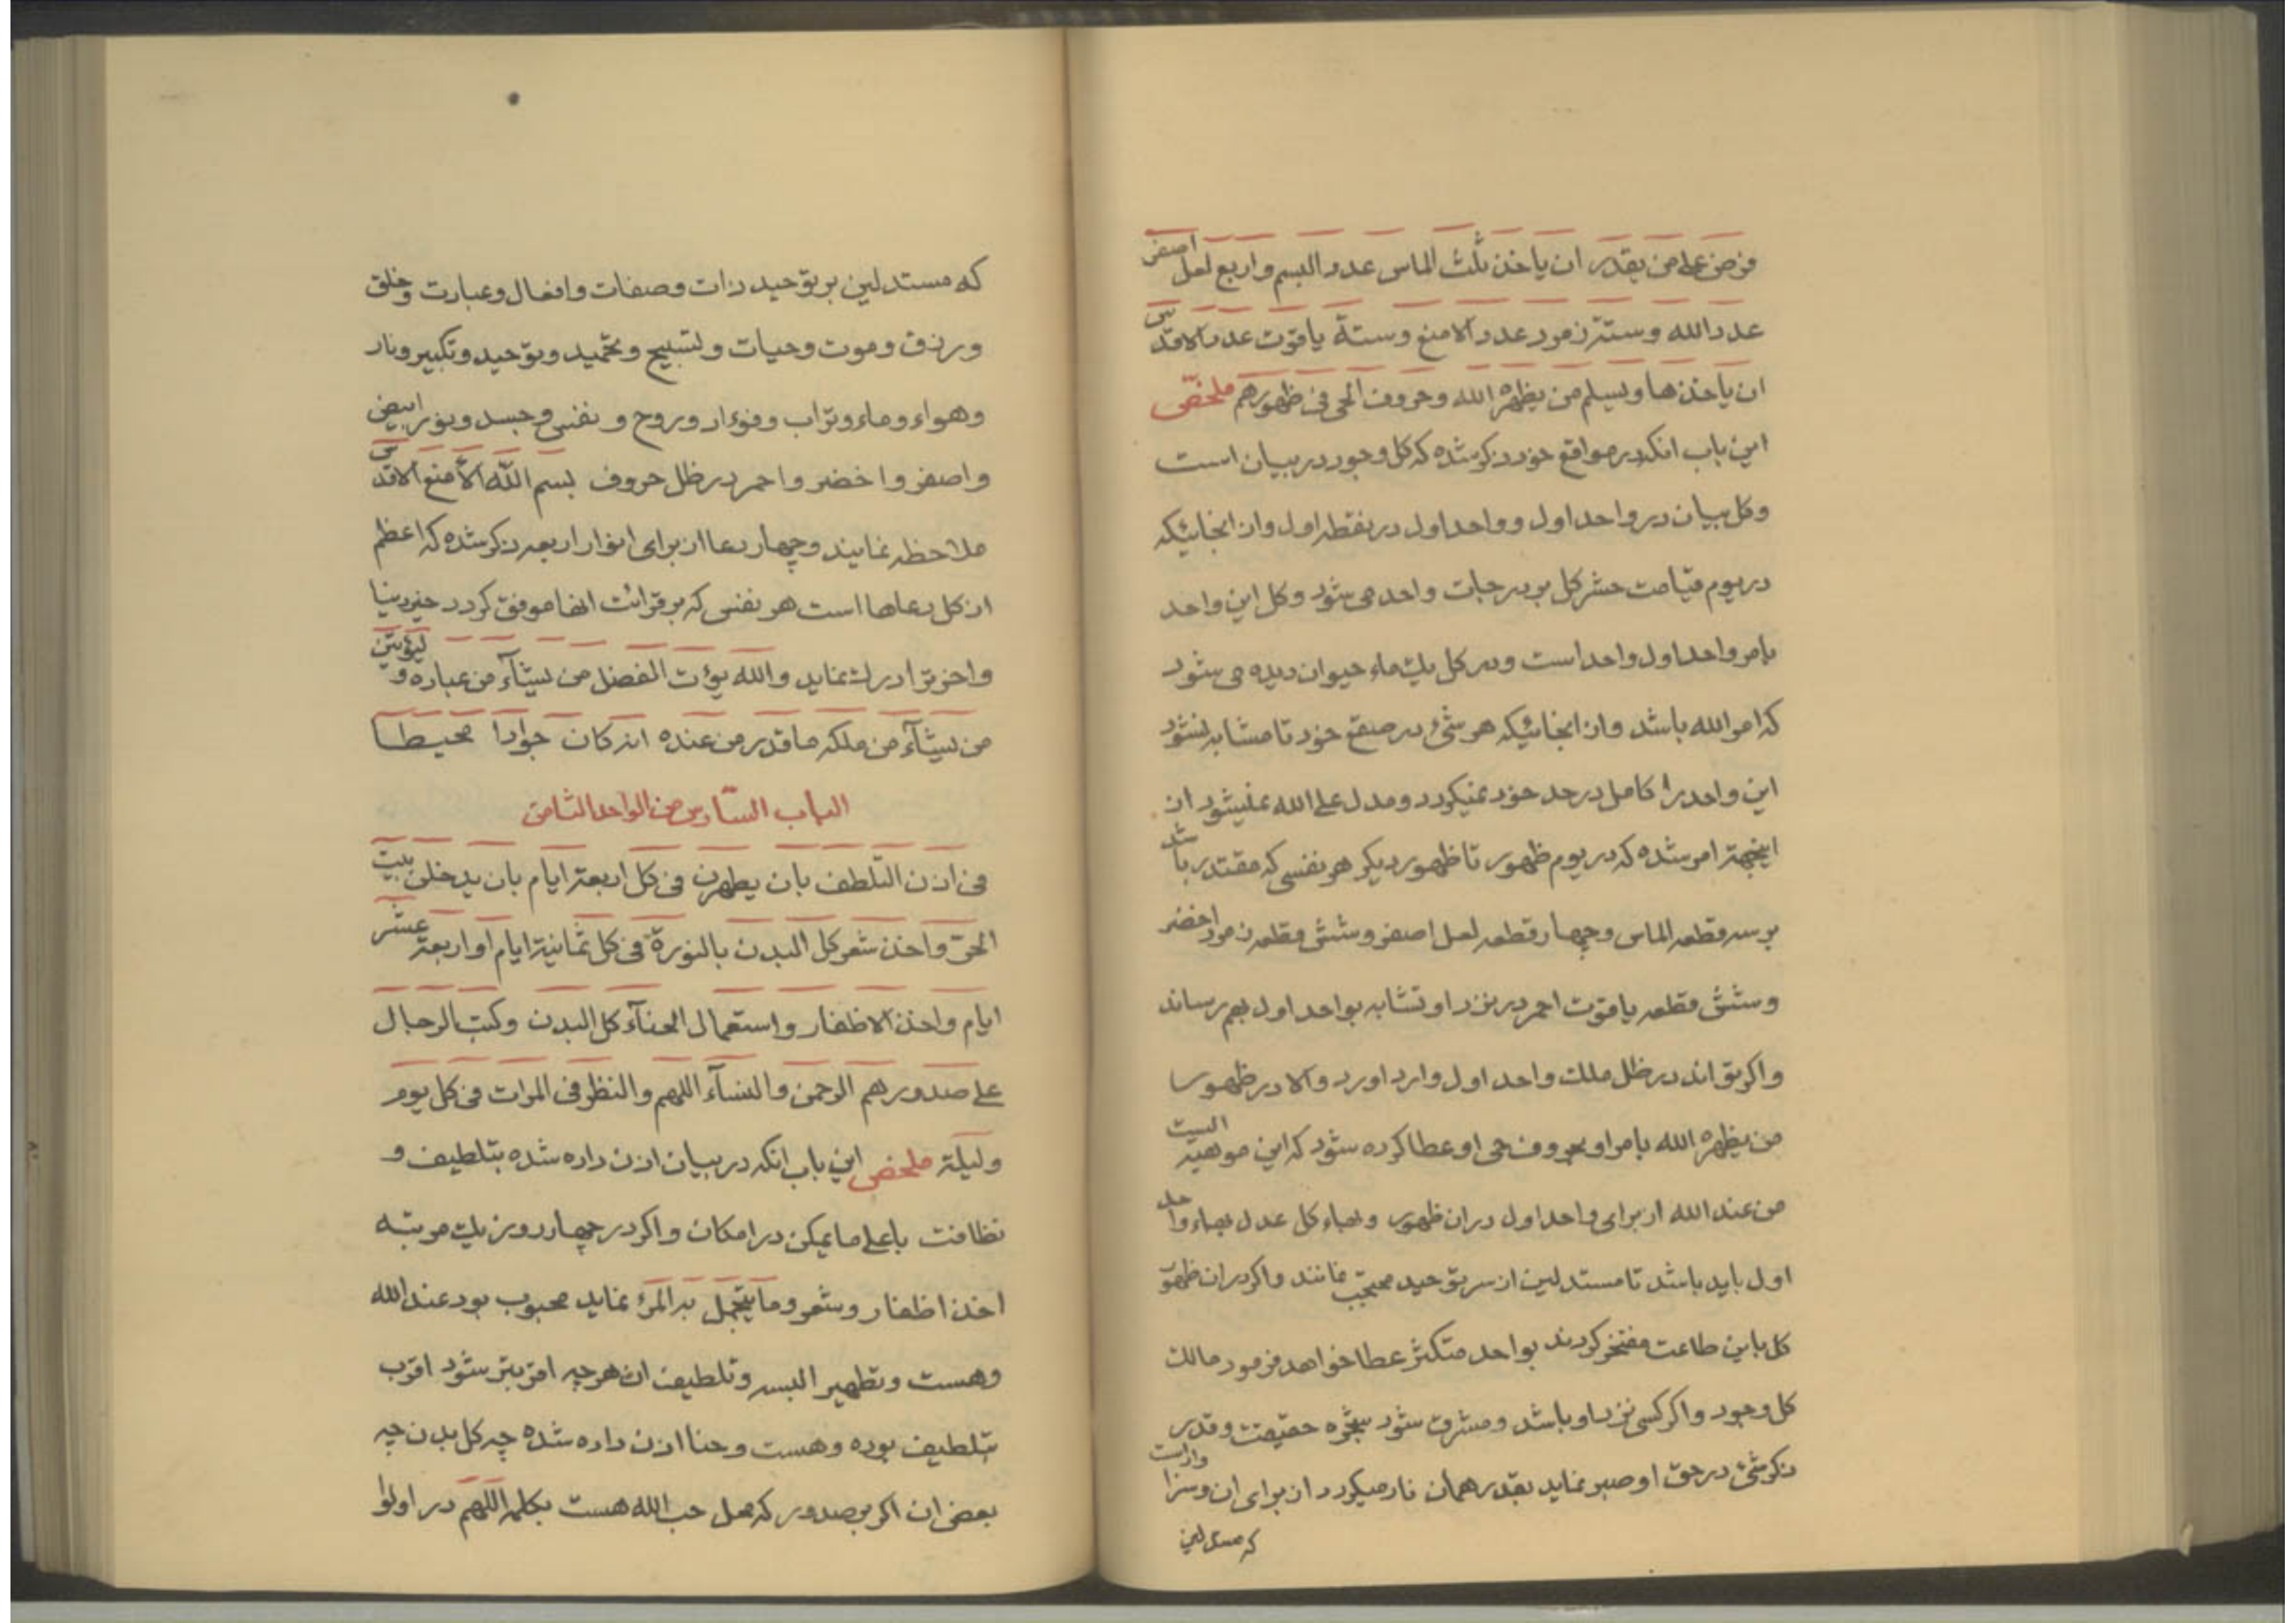 فرض علی من یقدر ان یاخذ ثلث الماس عدد البسم و اربع لعل اصفر
عدد الله و ستة زمرد عدد الامنع و ستة یاقوت عدد الاقدس
ان یاخذها و یسلم من یظهره الله و حروف الحی فی ظهورهم ملخص
این باب انکه در مواقع خود ذکر شده که کل وجود در بیان است
وکل بیان در واحد اول و واحد اول در نقطه اول و از انجائیکه
در یوم قیامت حشر کل بدرجات واحد می شود و کل این واحد
بامر واحد اول واحد است و در کل یک ماء حیوان دیده می شود
که امر الله باشد و از انجائیکه هر شئ در صقع خود تا مشابه نشود
این واحد را کامل در حد خود نمیکردد و مدل علی الله نمیشود از
اینجهة امر شده که در یوم ظهور تا ظهور دیکر هر نفسی که مقتدر باشد
بر سه قطعه الماس و چهار قطعه لعل اصفر و شش قطعه زمرد اخضر
و شش قطعه یاقوت احمر در نزد او تشابه بواحد اول بهم رساند
و اکر تواند در ظل ملک واحد اول وارد اورد و الا در ظهور
من یظهره الله بامر او بحروف حی او عطا کرده شود که این موهبه الیست
من عند الله از برای واحد اول در ان ظهور و بهاء کل عدل بهاء واحد
اول باید باشد تا مستدلین از سر توحید محتجب نمانند و اکر در ان ظهور
کل باین طاعت مفتخر کردند بواحد متکثر عطا خواهد فرمود مالک
کل وجود و اکر کسی نزد او باشد و مشرف شود بشجره حقیقت و قدر
ذکر شئ در حق او صبر نماید بقدر همان نار میکردد از برای ان و سزاوار است
که مستدلین
که مستدلین بر توحید ذات و صفات و افعال و عبادت و خلق
و رزق و موت و حیات و تسبیح و تحمید و توحید و تکبیر و نار
وهواء و ماء و تراب و فوءاد و روح و نفس و جسد و نور ابیض
و اصفر و اخضر و احمر در ظل حروف بسم الله الامنع الاقدس
ملاحظه نمایند و چهار دعا از برای انوار اربعه ذکر شده که اعظم
از کل دعاها است هر نفسی که بر قرائت انها موفق کردد خیر دنیا
و اخرترا درک نماید والله یؤت الفضل من یشآء من عباده و لیؤتین
من یشآء من ملکه ما قدر من عنده انه کان جوادا محیطا
الباب السادس من الواحد الثامن
فی اذن التلطف بان یطهرن فی کل اربعة ایام بان یدخلن بیت
الحر و اخذ شعر کل البدن بالنورة فی کل ثمانیة ایام او اربعة عشر
ایام و اخذ الاظفار و استعمال الحنآء کل البدن وکتب الرجال
علی صدورهم الرحمن و النسآء اللهم و النظر فی المرات فی کل یوم
ولیلة ملخص این باب انکه در بیان اذن داده شده بتلطیف و
نظافت باعلی ما یمکن در امکان و اکر در چهار روز یک مرتبه
اخذ اظفار و شعر و ما یتجمل به المرء نماید محبوب بود عند الله
وهست و تطهیر البسه و تلطیف ان هر چه اقربتر شود اقرب
بتلطیف بوده و هست و حنا اذن داده شده چه کل بدن چه
بعض ان اکر بر صدور که محل حب الله هست بکلمه اللهم در اولوا